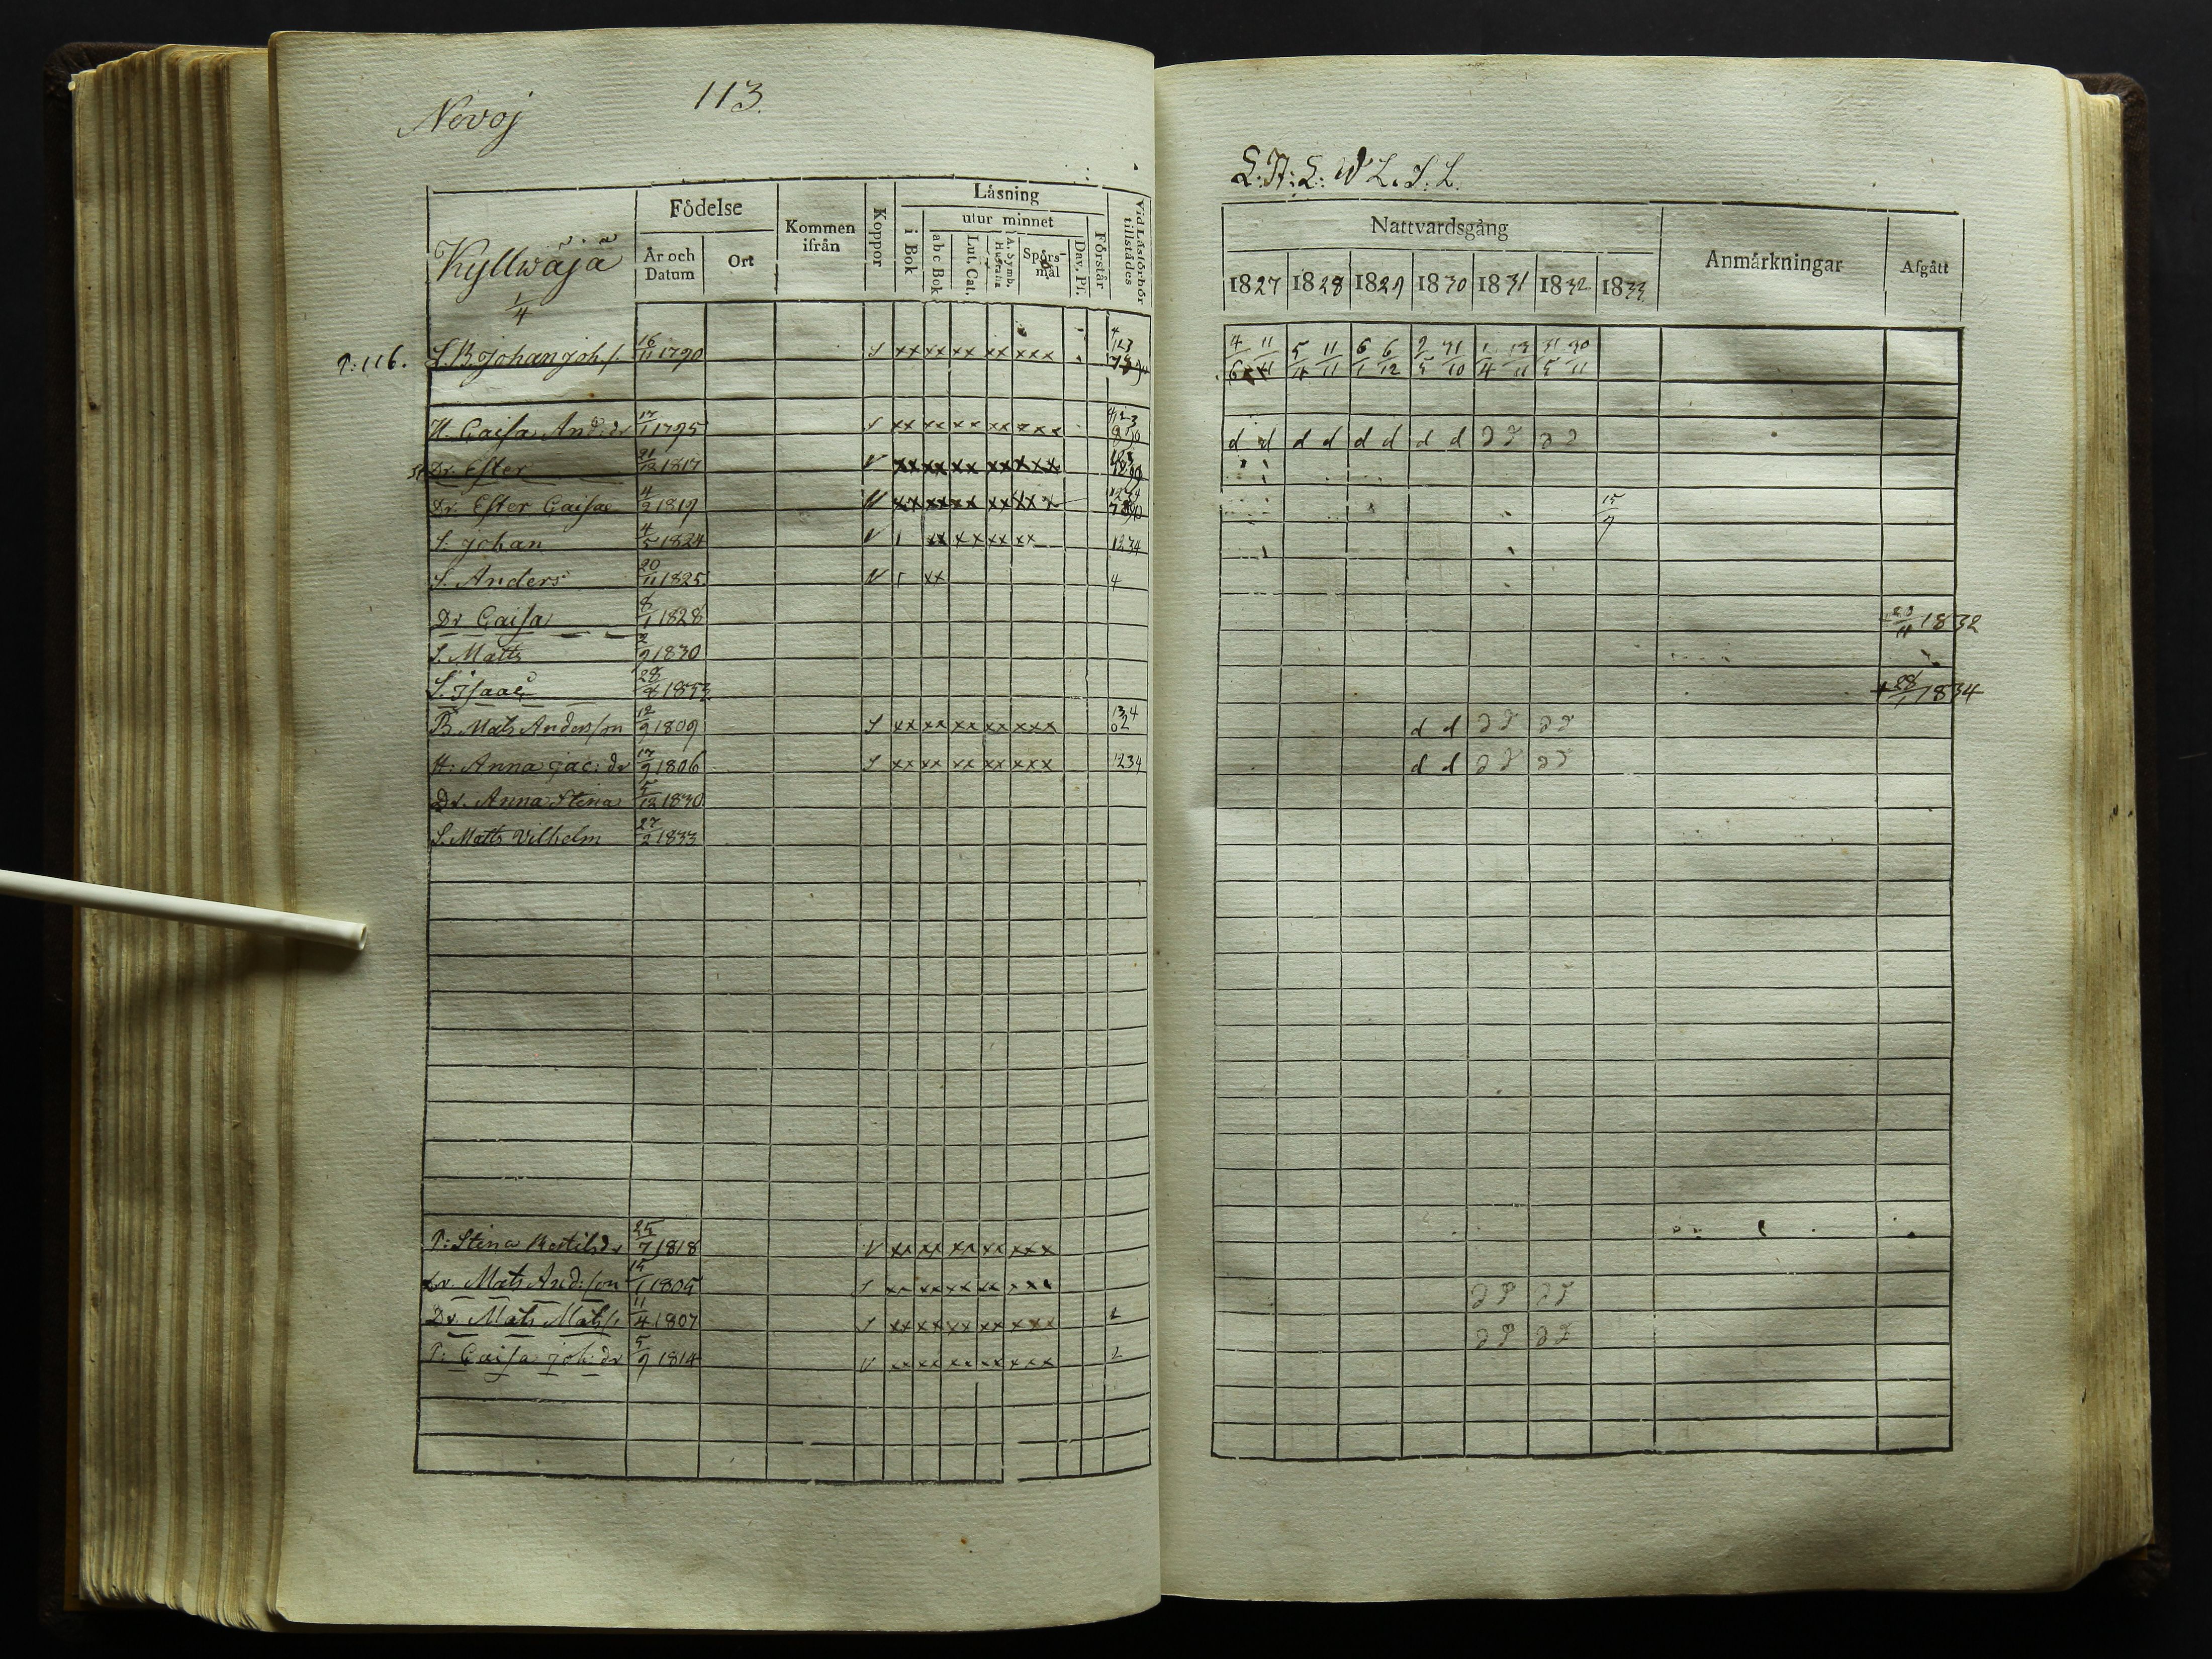 Nevoj 113.
Kyllwäjä
1/4
Födelse
År och Datum
Ort
Kommen ifrån
Koppor
Låsning
i Bok
utur minnet
abc Bok
Lut. Cat.
A. Symb. Hustafla
Spörsmål
Dav. Ps.
Förstår
Vid Låsförhör tillstådes
P: 116. L.B. Johan Joh. s. 16/11 1790 S xx xx xx xx xxx
H. Caisa And: dr 17/1 1795 S xx xx xx xx xxx
Dr. Ester 21/12 1817 V xx xx xx xx xxx
Dr. Ester Caisa 4/2 1819 V xx xx xx xx xxx
S. Johan 4/5 1824 V 1 xx xx xx xx 1234
S. Anders 20/11 1825 V 1 xx 4
Dr Caisa 8/1 1828
S. Matts 2/9 1830
S. Isaac 28/8 1833
B. Mats Andersson 12/9 1809 S xx xx xx xx xxx
H: Anna Jac: dr 17/9 1806 S xx xx xx xx xxx 1234
Dr. Anna Stina 5/12 1830
S. Matts Vilhelm 27/2 1833
P: Stina Bertilsdr 25/7 1818 V xx xx xx xx xxx
Dr. Mats And:son 15/1 1805 S xx xx xx xx xxx
Dr. Mats Mats s. 11/4 1807 S xx xx xx xx xxx 2
P: Caisa Joh: dr 5/9 1814 V xx xx xx xx xxx 2
L: H: L: W L. S. L.
Nattvardsgång
Anmärkningar
Afgått
1827 1828 1829 1830 1831 1832 1833
4/6 11/11 5/4 11/11 6/1 6/12 2/5 31/10 1/4 13/11 31/5 30/11
d d d d d d d d d d d d
15/9
+ 23/11 1832
+ 28/1 1834
d d d d d d
d d d d d d